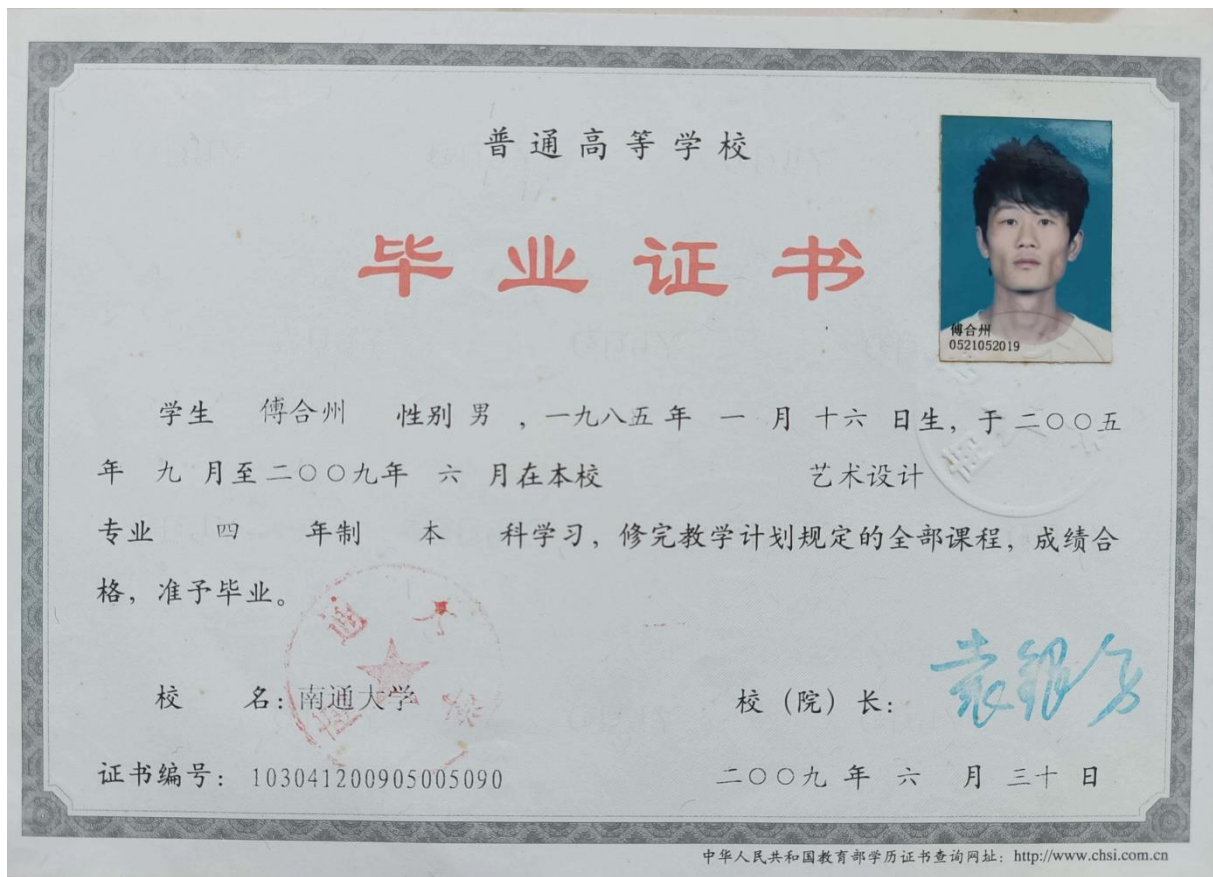 普通高等学校
毕业证书
傅合州
0521052019
学生 傅合州 性别 男 ,一九八五 年 一 月 十六 日生,于 二○○五
年 九 月至 二○○九年 六 月在本校 艺术设计
专业 四 年制 本 科学习,修完教学计划规定的全部课程,成绩合
格,准予毕业。
校 名:南通大学 校(院)长:
证书编号: 103041200905005090 二○○九 年 六 月 三十 日
中华人民共和国教育部学历证书查询网址:http://www.chsi.com.cn